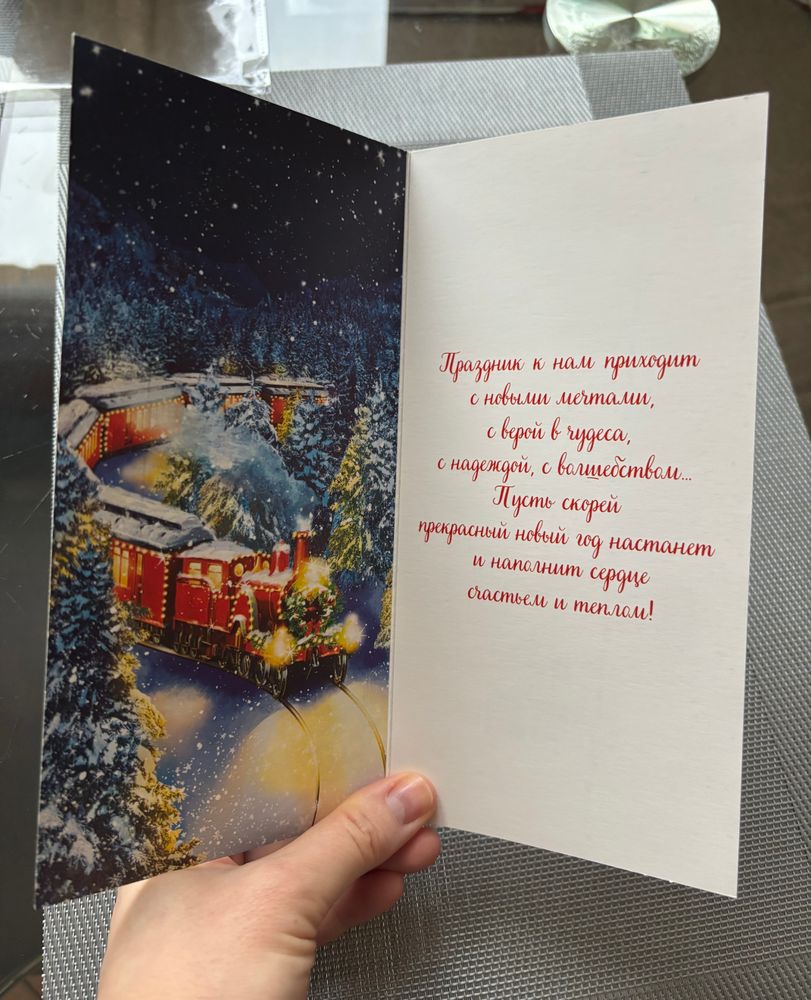 Праздник к нам приходит
с новыми мечтами,
с верой в чудеса,
с надеждой, с волшебством...
Пусть скорей
прекрасный новый год настанет
и наполнит сердце
счастьем и теплом!